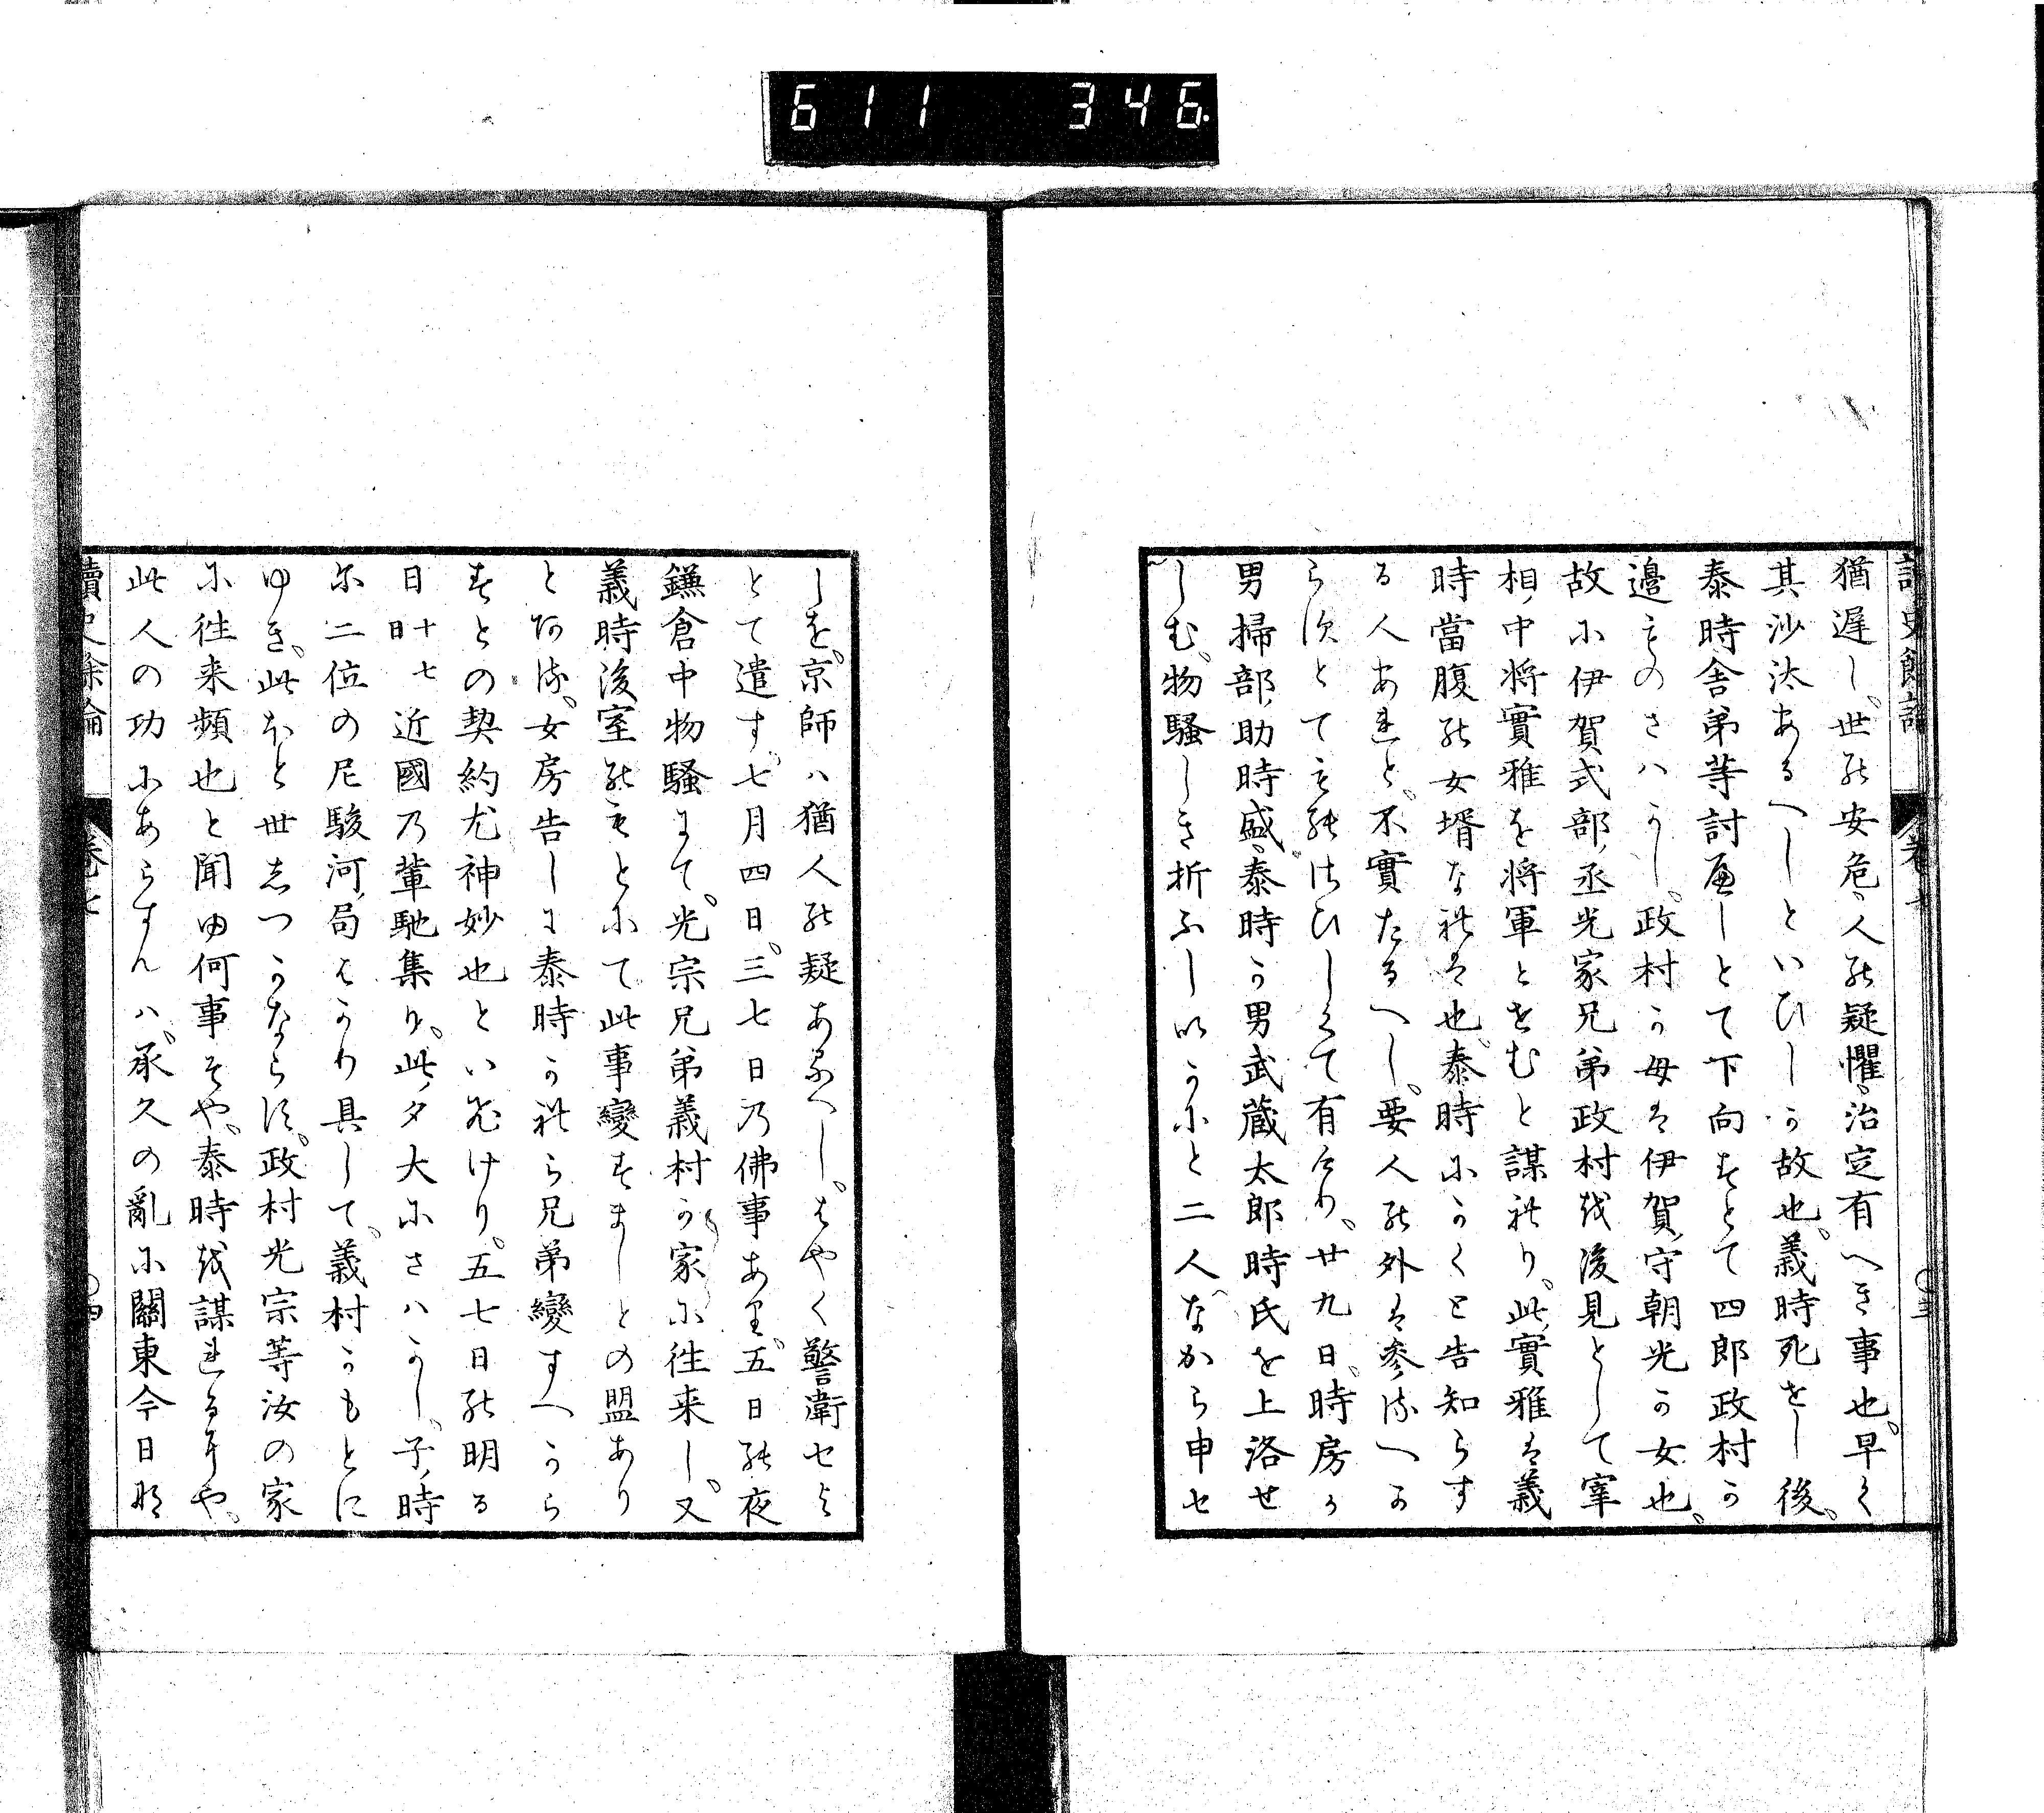 611 346
讀史餘論 卷七 〇三
猶遲し、世の安危、人の疑懼、治定有へき事也、早く
其沙汰あるへしといひしか故也、義時死せし後、
泰時舎弟等討へしとて下向すとて四郎政村か
邉ものさハかし、政村か母は伊賀守朝光か女也、
故に伊賀式部丞光家兄弟政村を後見として宰
相中将實雅を将軍とせむと謀れり、此實雅は義
時當腹の女壻なれは也、泰時にかくと告知らす
る人あれと、不實たるへし、要人の外は参るへか
らすとてもてはひしくて有けり、廿九日、時房か
男掃部助時盛、泰時か男武蔵太郎時氏を上洛せ
しむ、物騒しき折ふしいかにと二人なから申せ
しを、京師ハ猶人の疑あるへし、はやく警衛せよ
とて遣す、七月四日、三七日乃佛事あり、五日の夜
鎌倉中物騒にて、光宗兄弟義村か家に往来し、又
義時後室のもとにて此事變すましとの盟あり
とある、女房告しに泰時かれら兄弟變すへから
すとの契約尤神妙也といひけり、五七日の明る
日十七日近國乃輩馳集り、此夕大にさハかし、子時
に二位の尼駿河局はかり具して、義村かもとに
ゆき、此ほと世しつかならす、政村光宗等汝の家
に往来頻也と聞ゆ何事そや、泰時を謀れるにや、
此人の功にあらすんハ、承久の亂に關東今日な
讀史餘論 卷七 〇四